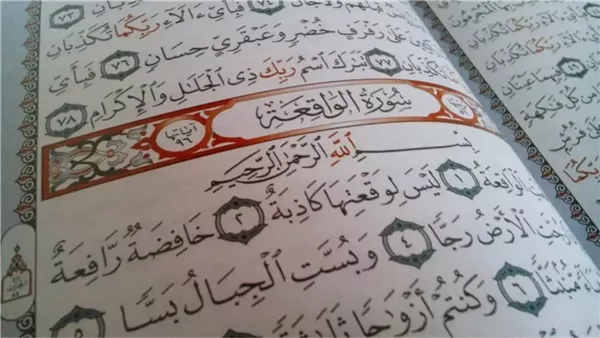 قَبْلَهُمْ وَلَا جَانٌّ ٧٤ فَبِأَيِّ ءَالَآءِ رَبِّكُمَا تُكَذِّبَانِ
عَلَىٰ رَفْرَفٍ خُضْرٍ وَعَبْقَرِيٍّ حِسَانٍ ٧٦ فَبِأَيِّ
تُكَذِّبَانِ ٧٧ تَبَٰرَكَ ٱسْمُ رَبِّكَ ذِى ٱلْجَلَٰلِ وَٱلْإِكْرَامِ ٧٨
سُورَةُ الْوَاقِعَةِ
آيَاتُهَا ٩٦
بِسْمِ ٱللَّهِ ٱلرَّحْمَٰنِ ٱلرَّحِيمِ
ٱلْوَاقِعَةُ ١ لَيْسَ لِوَقْعَتِهَا كَاذِبَةٌ ٢ خَافِضَةٌ رَّافِعَةٌ
ٱلْأَرْضُ رَجًّا ٤ وَبُسَّتِ ٱلْجِبَالُ بَسًّا ٥
مُّنۢبَثًّا ٦ وَكُنتُمْ أَزْوَٰجًا ثَلَٰثَةً